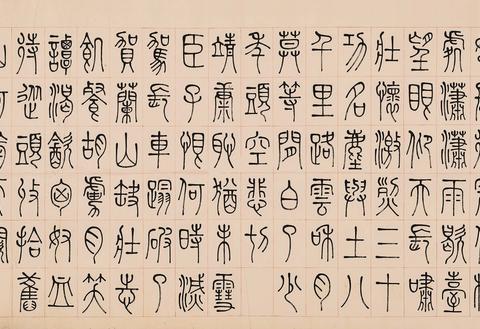 處瀟瀟雨歇臺
望眼仰天長嘯
壯懷激烈三十
功名塵與土八
千里路雲咊月
莫等閒白了少
年頭空悲切
靖康恥猶未雪
臣子恨何時滅
駕長車蹋破了
賀蘭山缺壯志
飢餐胡虜肉笑
譚渴飲匈奴血
待從頭收拾舊